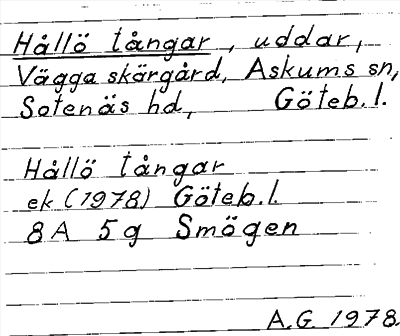 Hållö tångar, uddar,
Vägga skärgård, Askums sn,
Sotenäs hd, Göteb. l.
Hållö tångar
ek (1978) Göteb. l.
8A 5g Smögen
A.G. 1978.